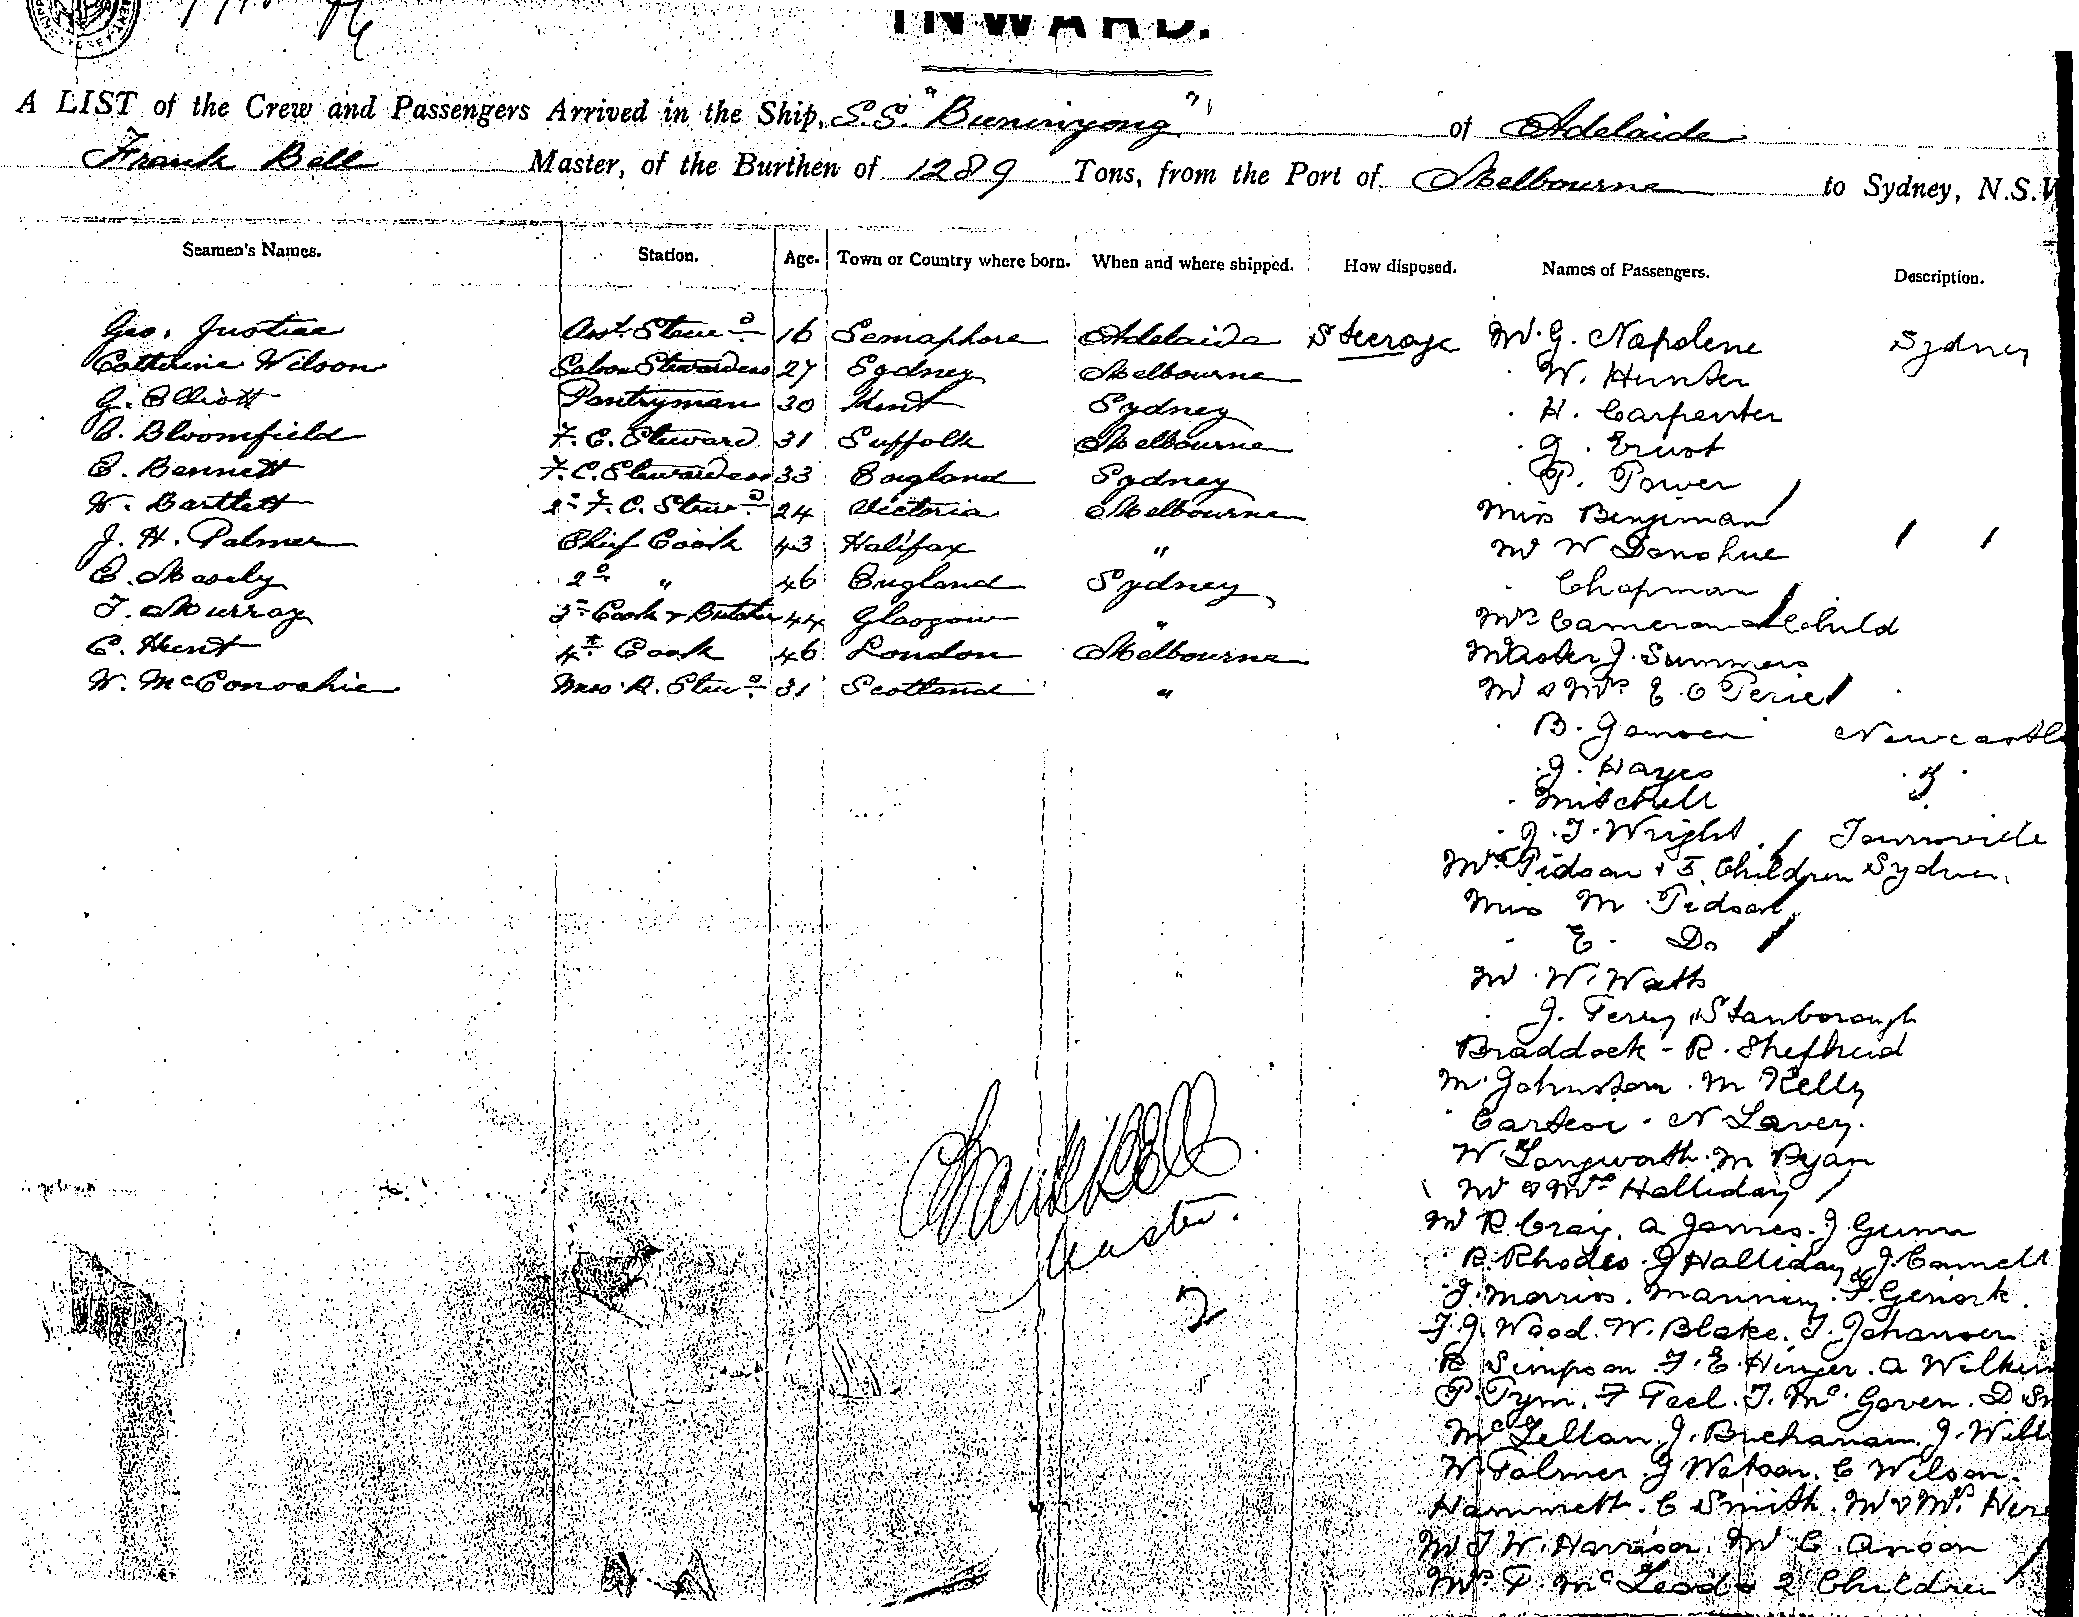 INWARD.
A LIST of the Crew and Passengers Arrived in the Ship, S.S. "Buninyong", of Adelaide
Frank Bell Master, of the Burthen of 1289 Tons, from the Port of Melbourne to Sydney, N.S.W
Seamen's Names. Station. Age. Town or Country where born. When and where shipped. How disposed. Names of Passengers. Description.
Geo. Justice Asst. Stewd 16 Semaphore Adelaide Steerage Mr. G. Napolene Sydney
Catherine Wilson Saloon Stewardess 27 Sydney Melbourne W. Hunter
G. Elliott Pantryman 30 Kent Sydney H. Carpenter
B. Bloomfield F. C. Steward 31 Suffolk Melbourne J. Ernst
E. Bennett F. C. Stewardess 33 England Sydney P. Power
W. Bartlett 2nd F. C. Stewd 24 Victoria Melbourne Miss Benjiman
J. H. Palmer Chief Cook 43 Halifax " Mr W Donohue
C. 2nd " 46 England Sydney Chapman
T. Murray 3rd Cook & Butcher 44 Glasgow " Mrs Cameron & Child
C. Hunt 4th Cook 46 London Melbourne Master J. Summers
W. McConochie Mess R. Stewd 31 Scotland " Mr & Mrs E O
B. Newcastle
J. Hayes
Mitchell
J. T. Wright Townsville
Mrs Tidson & 5 Children Sydney
Miss M Tidson
E. Do
Mr W. Watts
J. Terry, Stanborough
Braddock - R. Shepherd
M. Johnston. M Kelly
N Lavey.
W. Langworth. M Ryan
Mr & Mrs Halliday
Mr R Craig. A James. J Gunn
R. Rhodes. J Halliday. J.
J. Morris. Manning. F.
T. J. Wood. W. Blake. T. Johansen
R Simpson F. E. A
P. Pym. F Teel. T. Mc Goven. D
Mc Lellan. J. Buchanan. J.
W. Palmer J Watson. C Wilson.
Hammett. C Smith. Mr & Mrs
Mr J W. Harrison. Mr C. Anson
Mrs P. McLeod & 2 Children
Frank Bell
Master.
2